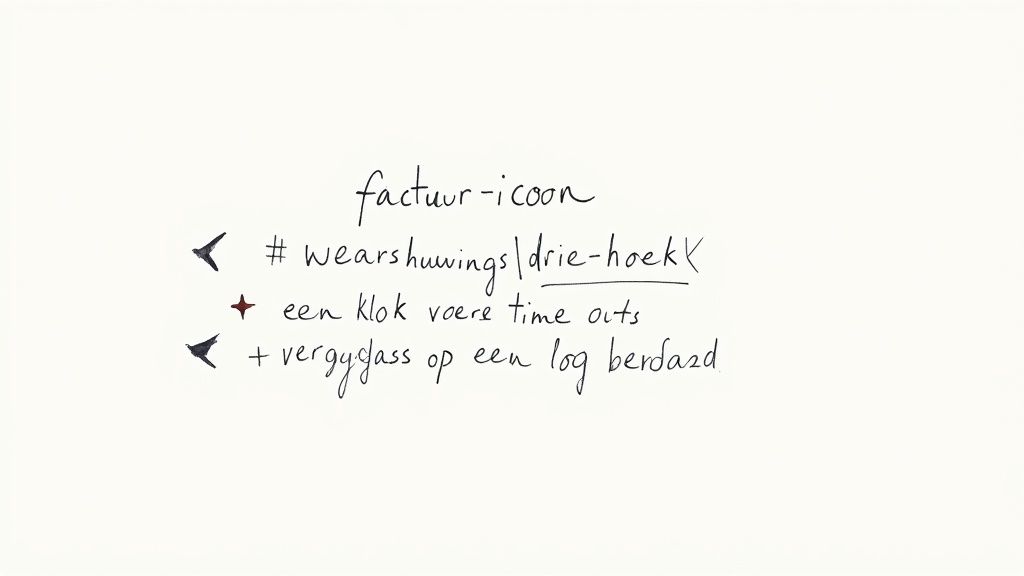 factuur-icoon
# wearshuwings|drie-hoek
een klok voere time outs
+ vergyglass op een log berdazd